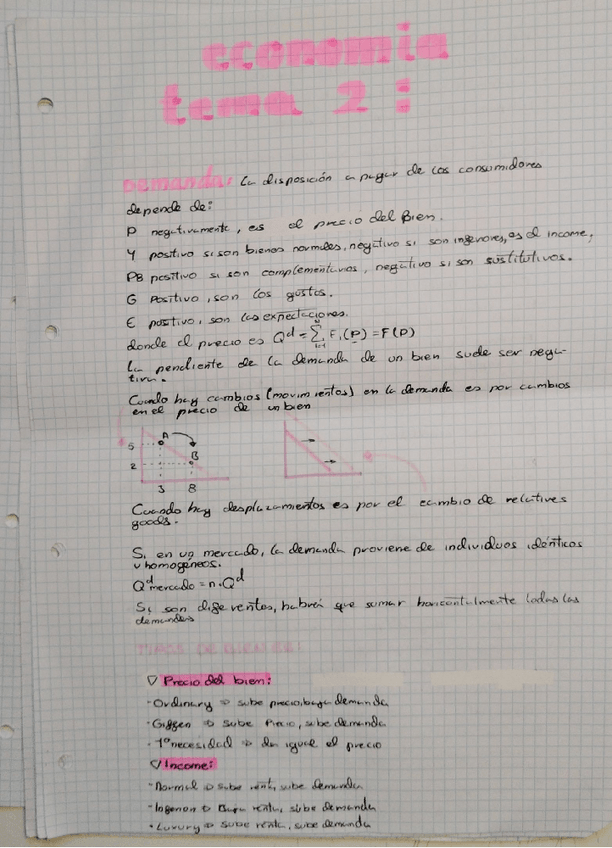 economia
tema 2:
Demanda: la disposición a pagar de los consumidores
depende de:
P negativamente, es el precio del Bien.
Y positivo si son bienes normales, negativo si son inferiores, es el income,
PB positivo si son complementarios, negativo si son sustitutivos.
G Positivo, son los gustos.
E positivo, son las expectaciones.
donde el precio es Q^d = Σ F_i(P) = F(P)
La pendiente de la demanda de un bien suele ser nega-
tiva.
Cuando hay cambios (movimientos) en la demanda es por cambios
en el precio de un bien
A
5
B
2
3 8
Cuando hay desplazamientos es por el cambio de relatives
goods.
Si en un mercado, la demanda proviene de individuos idénticos
u homogéneos.
Q^d mercado = n·Q^d
Si son diferentes, habrá que sumar horizontalmente todas las
demandas
TIPOS DE BIENES:
▽ Precio del bien:
- Ordinary ⇒ sube precio, baja demanda
- Giffen ⇒ sube Precio, sube demanda
- 1º necesidad ⇒ da igual el precio
▽ Income:
- Normal ⇒ sube renta, sube demanda
- Inferior ⇒ Baja renta, sube demanda
- Luxury ⇒ sube renta, sube demanda